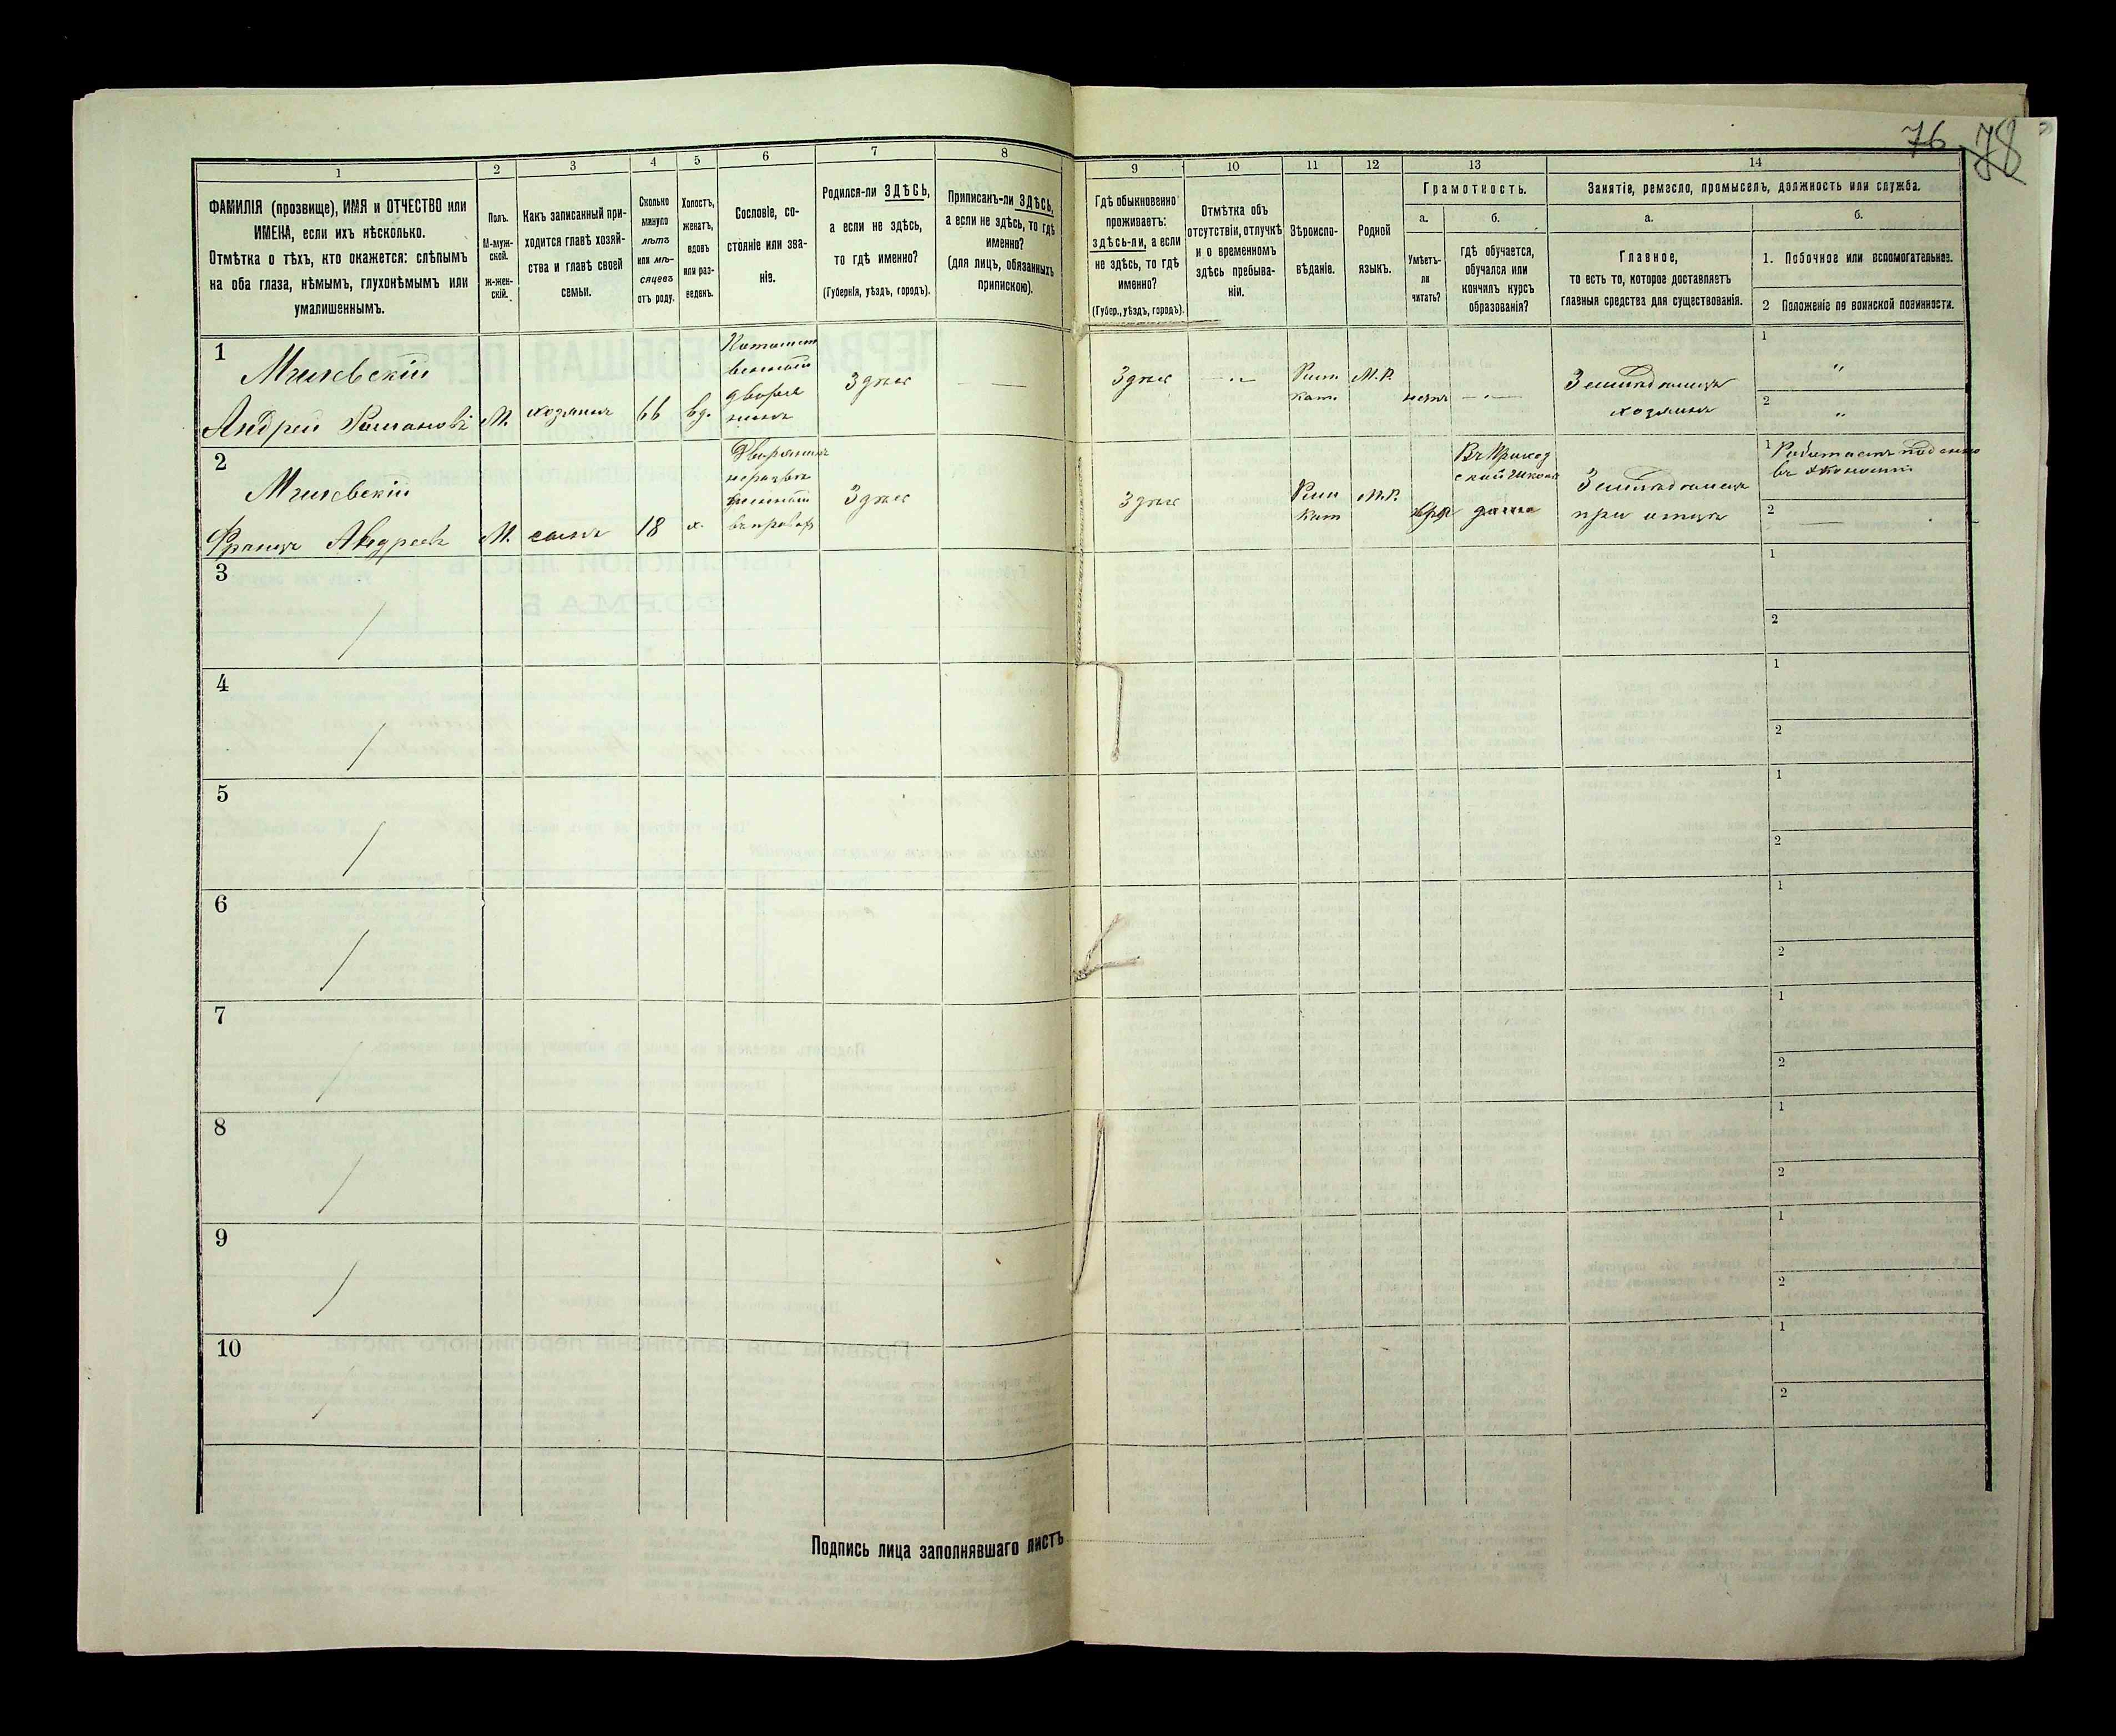 76 78
1
2
3
4
5
6
7
8
9
10
11
12
13
14
ФАМИЛІЯ (прозвище), ИМЯ и ОТЧЕСТВО или
ИМЕНА, если ихъ нѣсколько.
Отмѣтка о тѣхъ, кто окажется: слѣпымъ
на оба глаза, нѣмымъ, глухонѣмымъ или
умалишеннымъ.
Полъ.
М-муж-
ской.
Ж-жен-
скій.
Какъ записанный при-
ходится главѣ хозяй-
ства и главѣ своей
семьи.
Сколько
минуло
лѣтъ
или мѣ-
сяцевъ
отъ роду.
Холостъ,
женатъ,
вдовъ
или раз-
веденъ.
Сословіе, со-
стояніе или зва-
ніе.
Родился-ли ЗДѢСЬ,
а если не здѣсь,
то гдѣ именно?
(Губернія, уѣздъ, городъ).
Приписанъ-ли ЗДѢСЬ,
а если не здѣсь, то гдѣ
именно?
(для лицъ, обязанныхъ
припискою).
Гдѣ обыкновенно
проживаетъ:
здѣсь-ли, а если
не здѣсь, то гдѣ
именно?
(Губер., уѣздъ, городъ).
Отмѣтка объ
отсутствіи, отлучкѣ
и о временномъ
здѣсь пребыва-
ніи.
Вѣроиспо-
вѣданіе.
Родной
языкъ.
Грамотность.
а.
б.
Умѣетъ-
ли
читать?
гдѣ обучается,
обучался или
кончилъ курсъ
образованія?
Занятіе, ремесло, промыселъ, должность или служба.
а.
б.
Главное,
то есть то, которое доставляетъ
главныя средства для существованія.
1. Побочное или вспомогательное.
2 Положеніе по воинской повинности.
1
Андрей Романовъ
М.
хозяинъ
66
вд.
Потомст
венный
дворя
нинъ
Здѣсь
—
Здѣсь
Рим.
кат.
М.Р.
нетъ
Земледѣлецъ
хозяинъ
1
"
2
"
2
Францъ Андреевъ
М.
сынъ
18
х.
Дворянинъ
Здѣсь
Здѣсь
Рим
кат
М.Р.
Въ приход
ской школѣ
Земледѣлецъ
при отцѣ
1
въ экономіи
2
—
3
1
2
4
1
2
5
1
2
6
1
2
7
1
2
8
1
2
9
1
2
10
1
2
Подпись лица заполнявшаго листъ